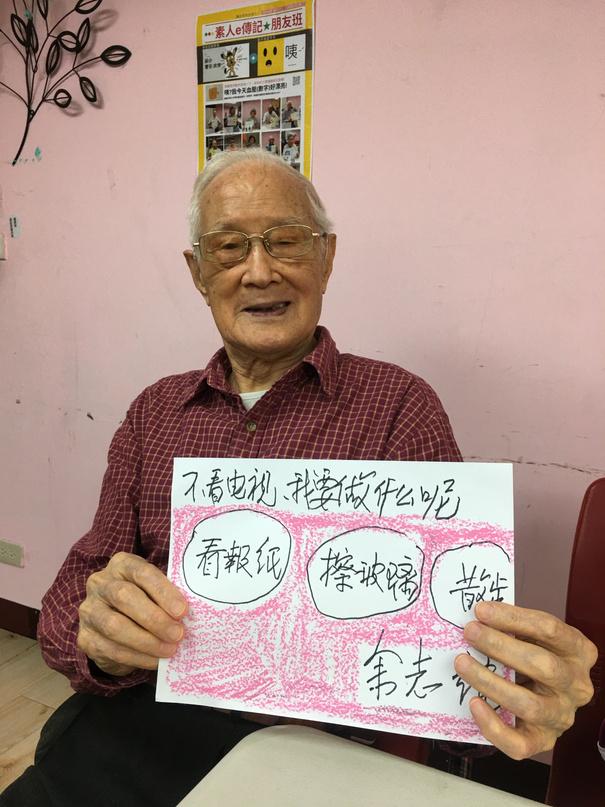 素人e傳記★朋友班
咦
咦?我今天血壓(數字)好漂亮!
不看电视、我要做什么呢
看報紙
擦玻璃
散步
余志